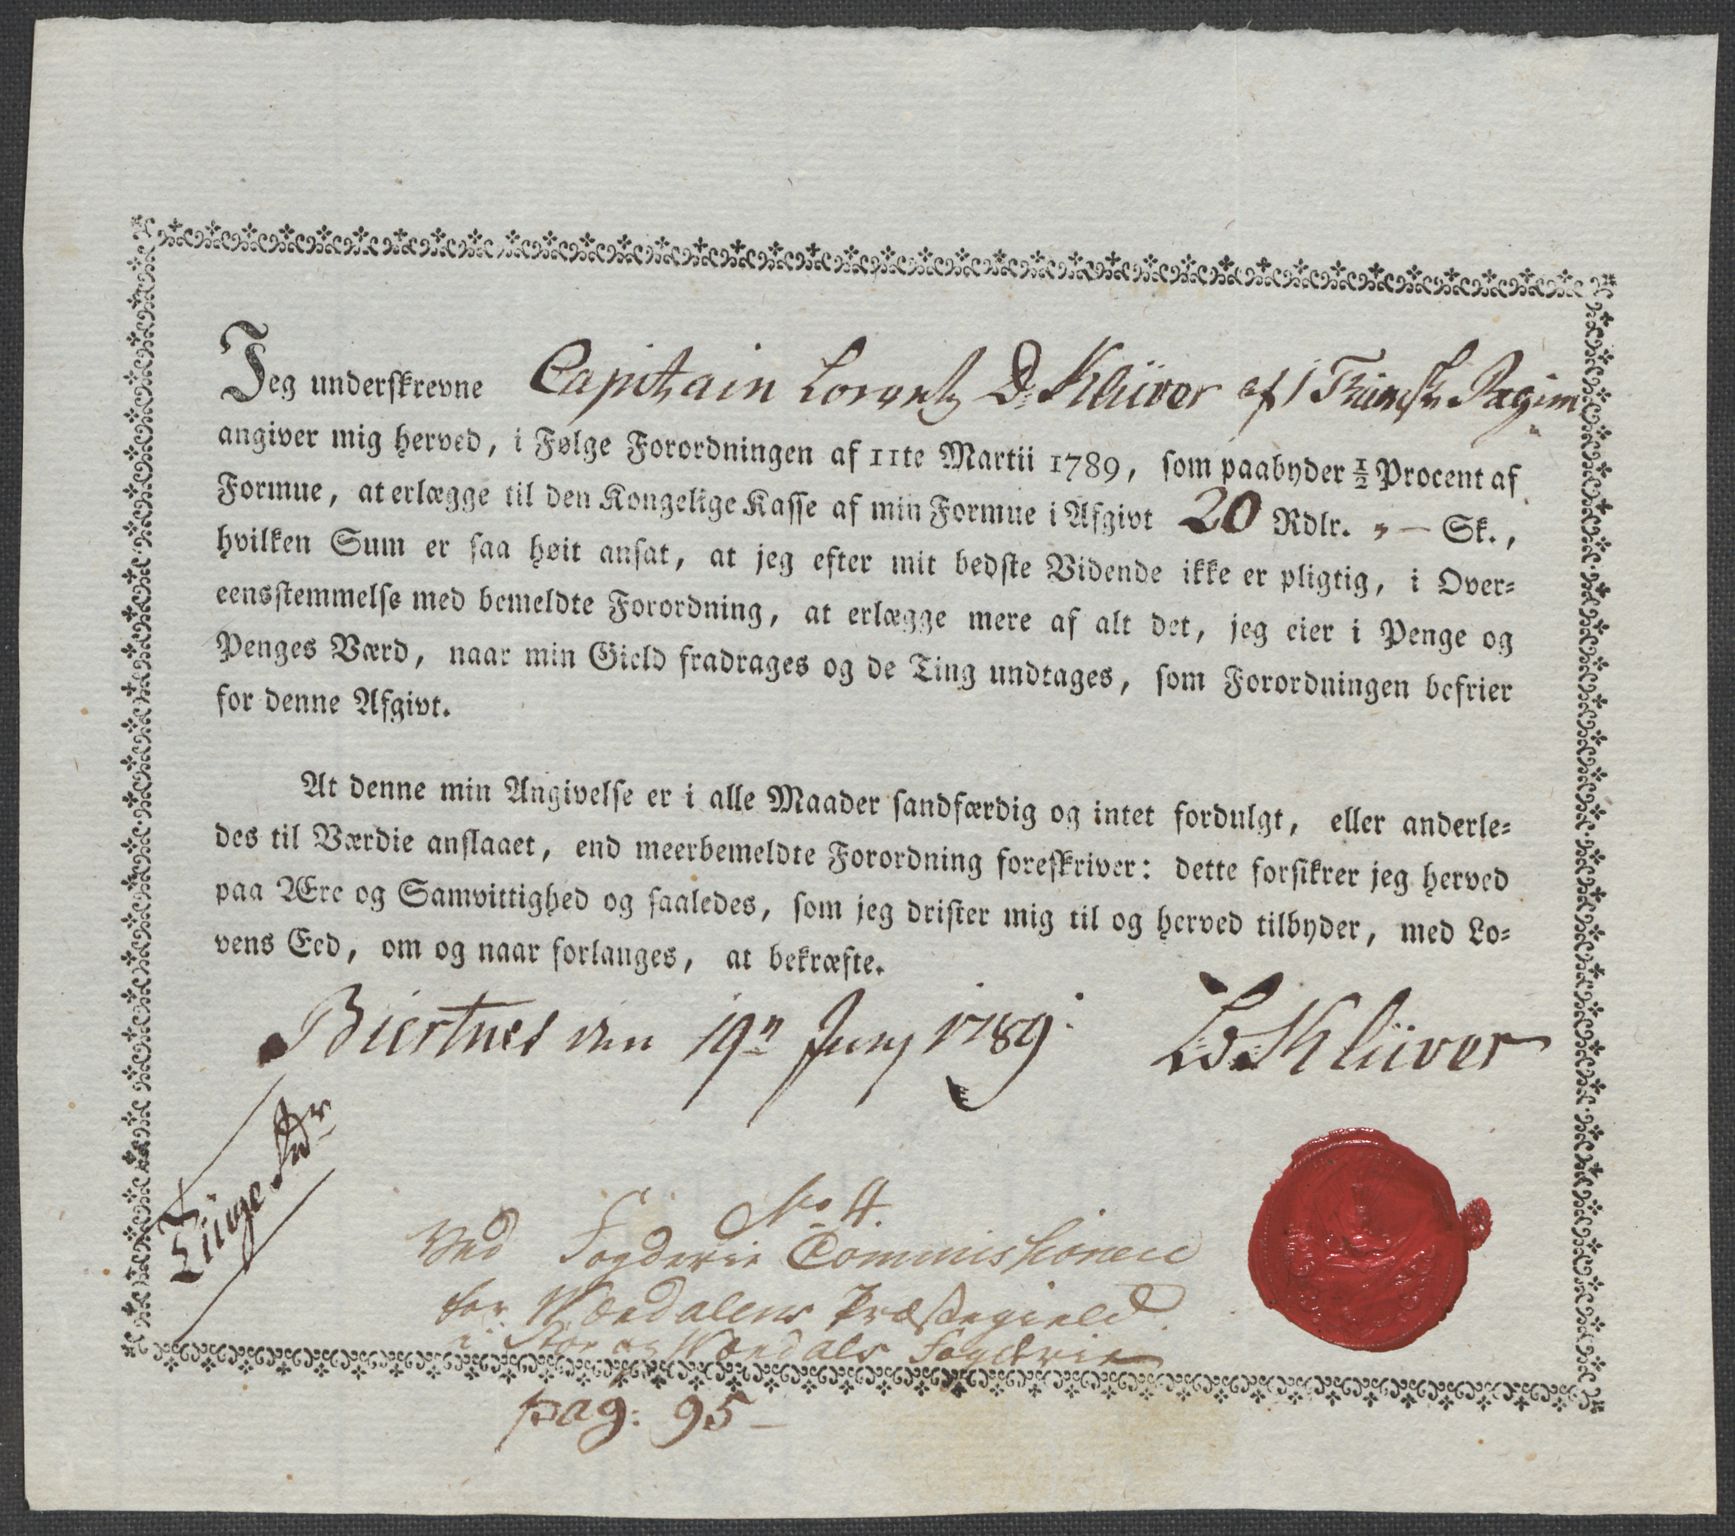 Jeg underskrevne Capitain Lorentz D: Klüver af 1 Trunhs Regim
angiver mig herved, i Følge Forordningen af 11te Martii 1789, som paabyder ½ Procent af
Formue, at erlægge til den Kongelige Kasse af min Formue i Afgivt 20 Rdlr. „ — Sk.,
hvilken Sum er saa høit ansat, at jeg efter mit bedste Vidende ikke er pligtig, i Over-
eensstemmelse med bemeldte Forordning, at erlægge mere af alt det, jeg eier i Penge og
Penges Værd, naar min Gield fradrages og de Ting undtages, som Forordningen befrier
for denne Afgivt.
At denne min Angivelse er i alle Maader sandfærdig og intet fordulgt, eller anderle-
des til Værdie anslaaet, end meerbemeldte Forordning foreskriver: dette forsikrer jeg herved
paa Ære og Samvittighed og saaledes, som jeg drister mig til og herved tilbyder, med Lo-
vens Eed, om og naar forlanges, at bekræfte.
Biertnes den 19n Juny 1789. LD. Klüver
Tiuge Rdr
No 4.
Ved Fogderie Commissionen
for Værdalens Præstegield
i Stør og Værdals Fogderie
pag: 95 —